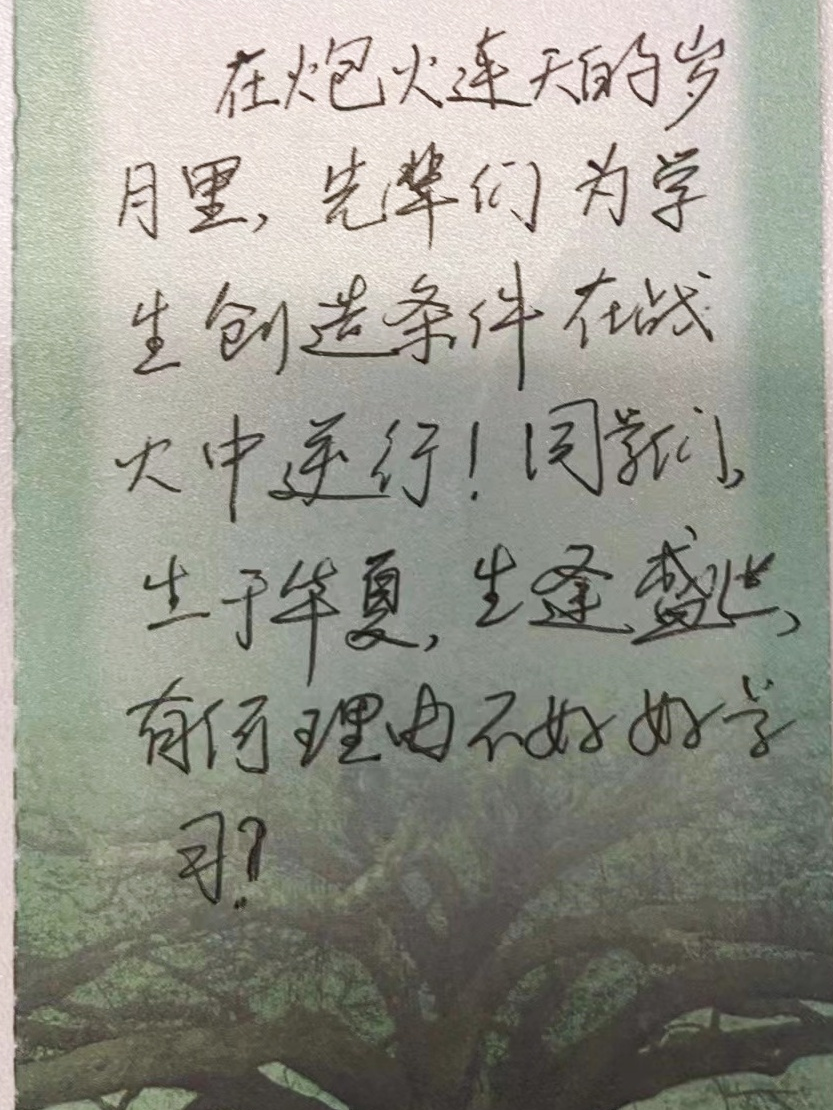 在炮火连天的岁
月里，先辈们为学
生创造条件在战
火中逆行！同学们，
生于华夏，生逢盛世，
有何理由不好好学
习？